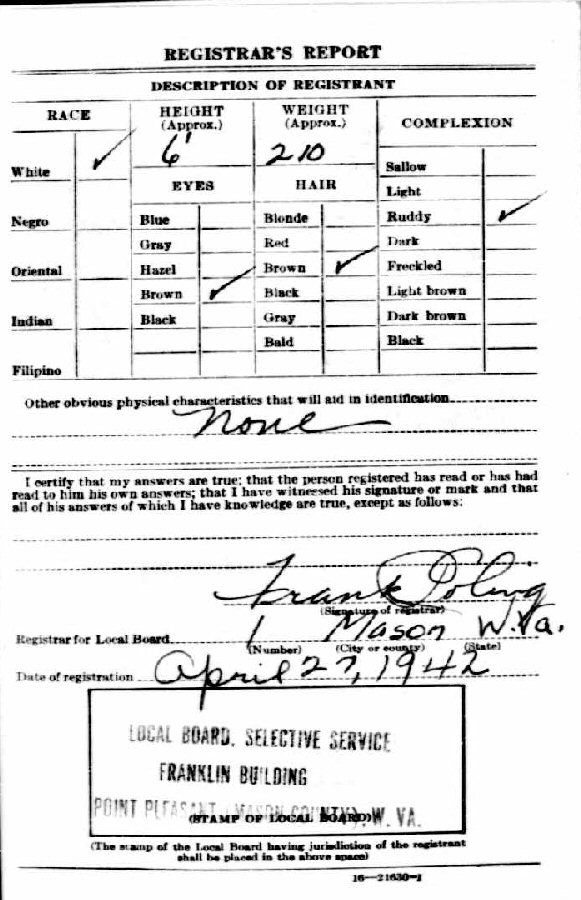 REGISTRAR'S REPORT
DESCRIPTION OF REGISTRANT
RACE
HEIGHT (Approx.)
WEIGHT (Approx.)
COMPLEXION
6'
210
White ✓
Sallow
EYES
HAIR
Light
Negro
Blue
Blonde
Ruddy ✓
Gray
Red
Dark
Oriental
Hazel
Brown ✓
Freckled
Brown ✓
Black
Light brown
Indian
Black
Gray
Dark brown
Bald
Black
Filipino
Other obvious physical characteristics that will aid in identification
None
I certify that my answers are true; that the person registered has read or has had
read to him his own answers; that I have witnessed his signature or mark and that
all of his answers of which I have knowledge are true, except as follows:
Frank Poling
(Signature of registrar)
Registrar for Local Board 1 Mason W.Va.
(Number) (City or county) (State)
Date of registration April 27, 1942
LOCAL BOARD, SELECTIVE SERVICE
FRANKLIN BUILDING
POINT PLEASANT (MASON COUNTY), W. VA.
(STAMP OF LOCAL BOARD)
(The stamp of the Local Board having jurisdiction of the registrant
shall be placed in the above space)
16—21630-1